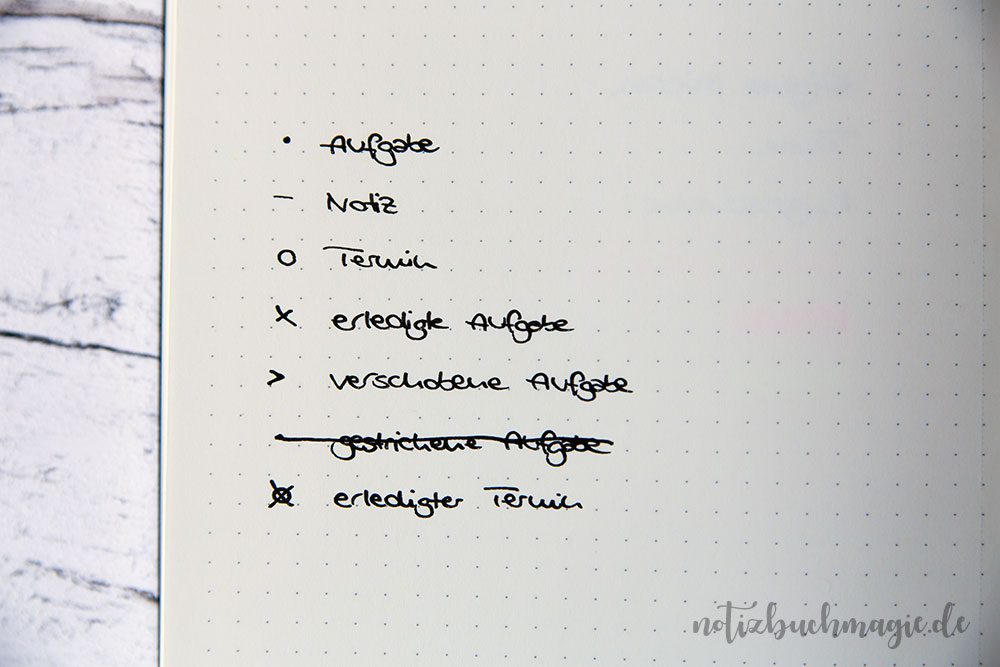 • Aufgabe
– Notiz
o Termin
x erledigte Aufgabe
> verschobene Aufgabe
gestrichene Aufgabe
⊗ erledigter Termin
notizbuchmagie.de